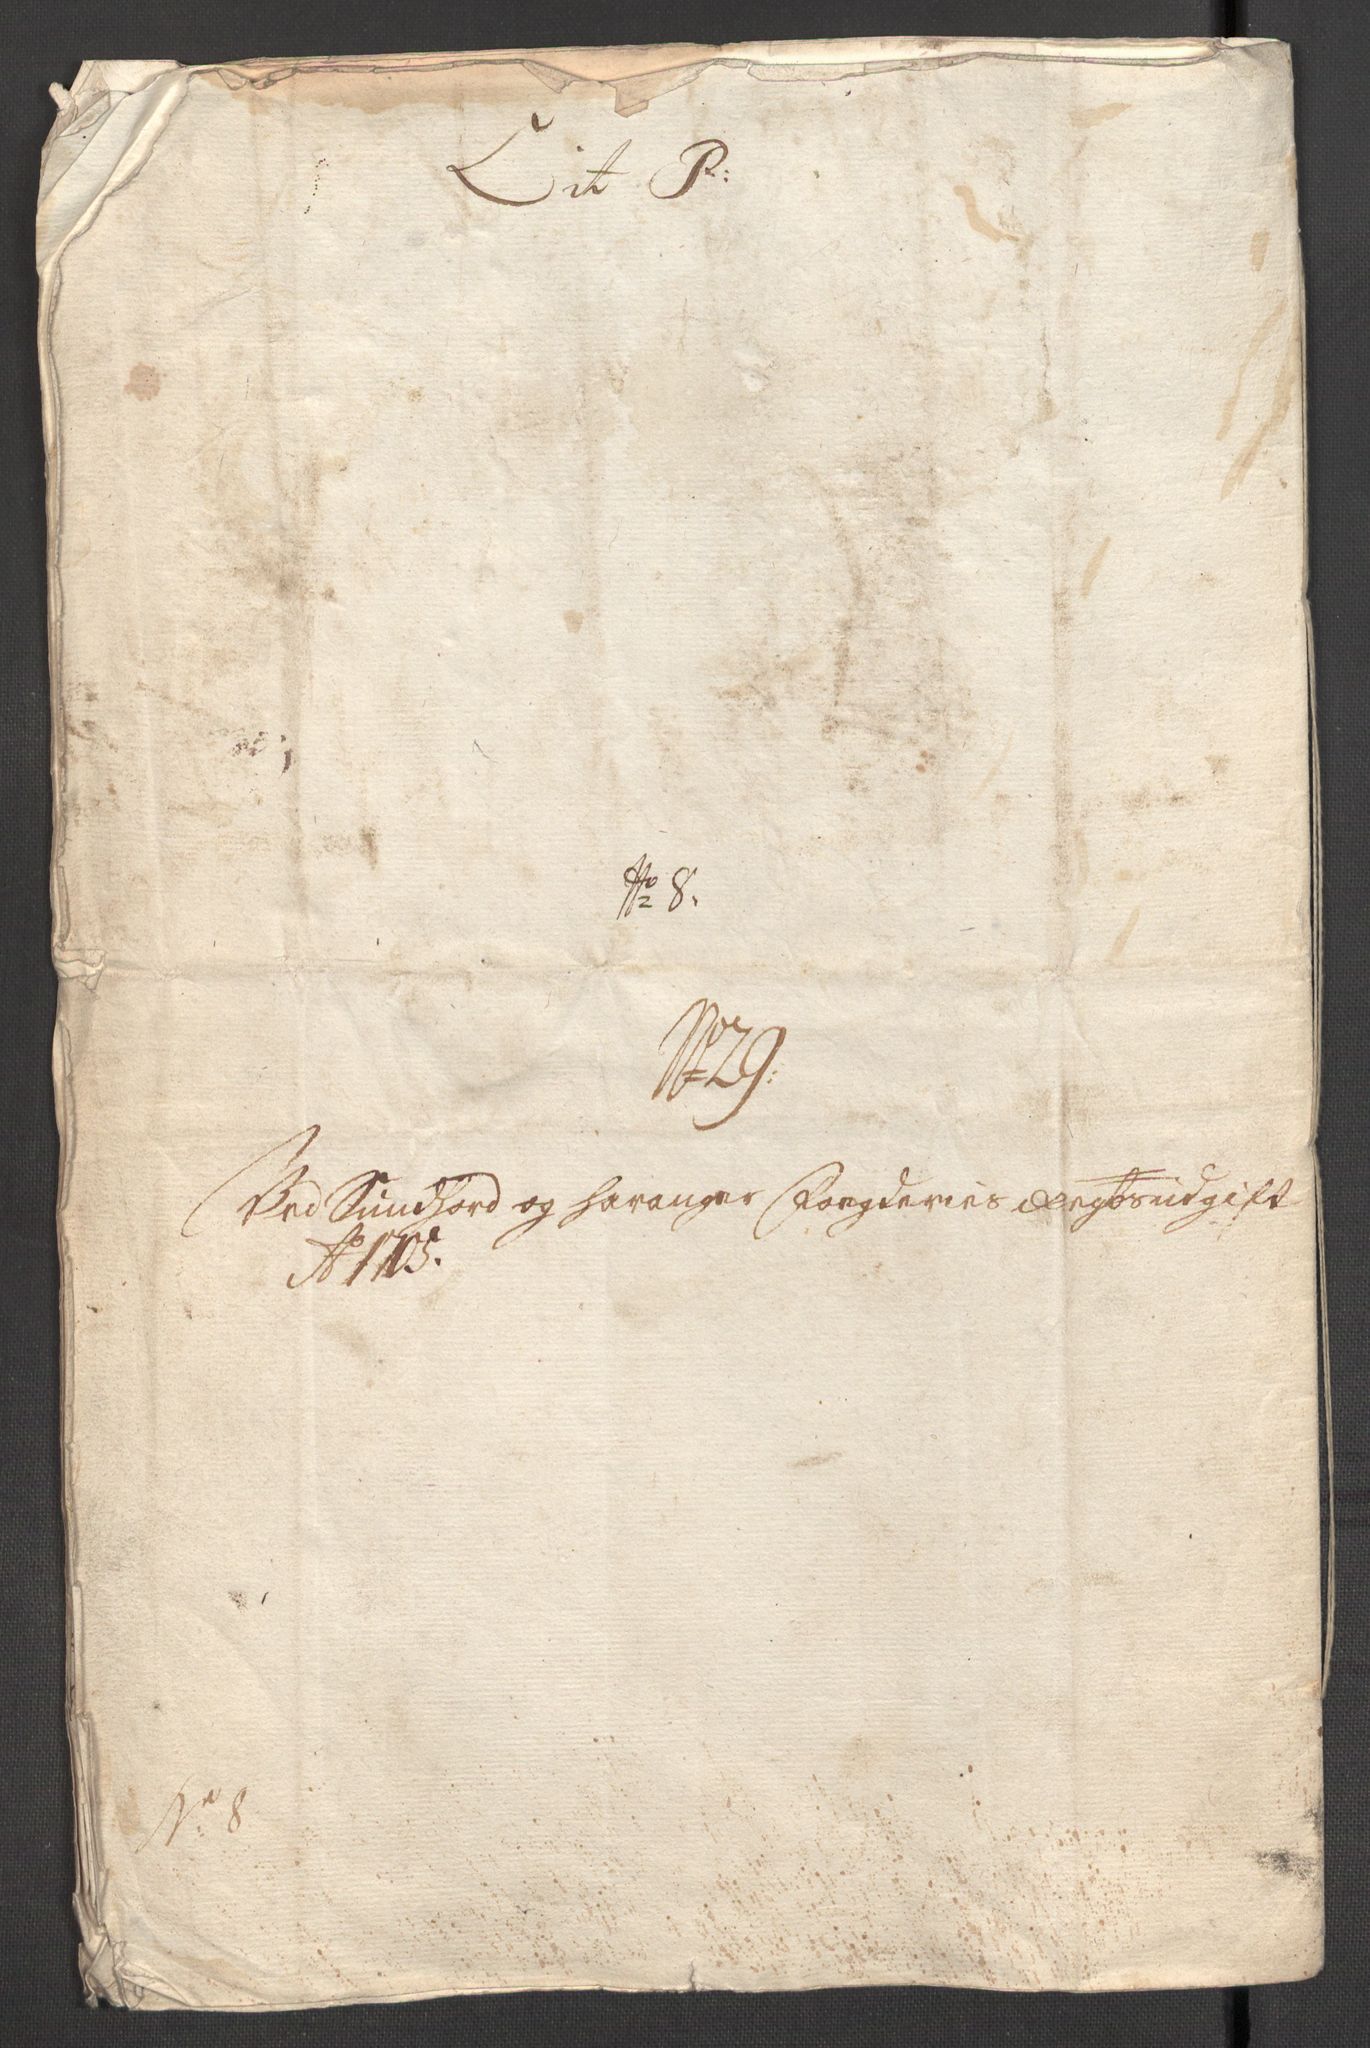 Lit P:
No 8.
No 29:
Ved Sundfiord og haranger Fougderies udgift
Ao 1705.
No 8